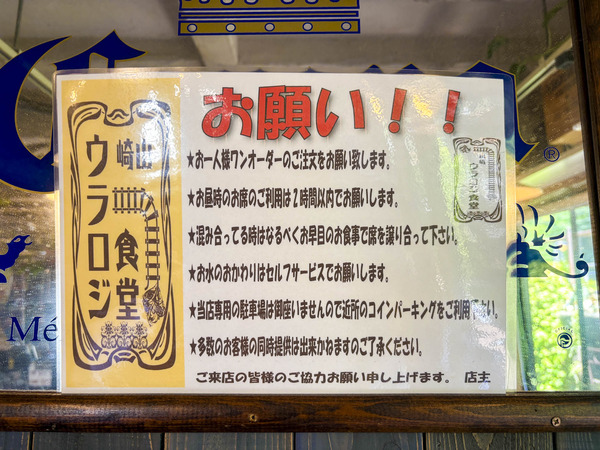 お願い！！
★お一人様ワンオーダーのご注文をお願い致します。
★お昼時のお席のご利用は２時間以内でお願いします。
★混み合ってる時はなるべくお早目のお食事で席を譲り合って下さい。
★お水のおかわりはセルフサービスでお願いします。
★当店専用の駐車場は御座いませんので近所のコインパーキングをご利用下さい。
★多数のお客様の同時提供は出来かねますのご了承ください。
ご来店の皆様のご協力お願い申し上げます。 店主
崎山
ウラロジ
食堂
ウラロジ食堂
Mé
®